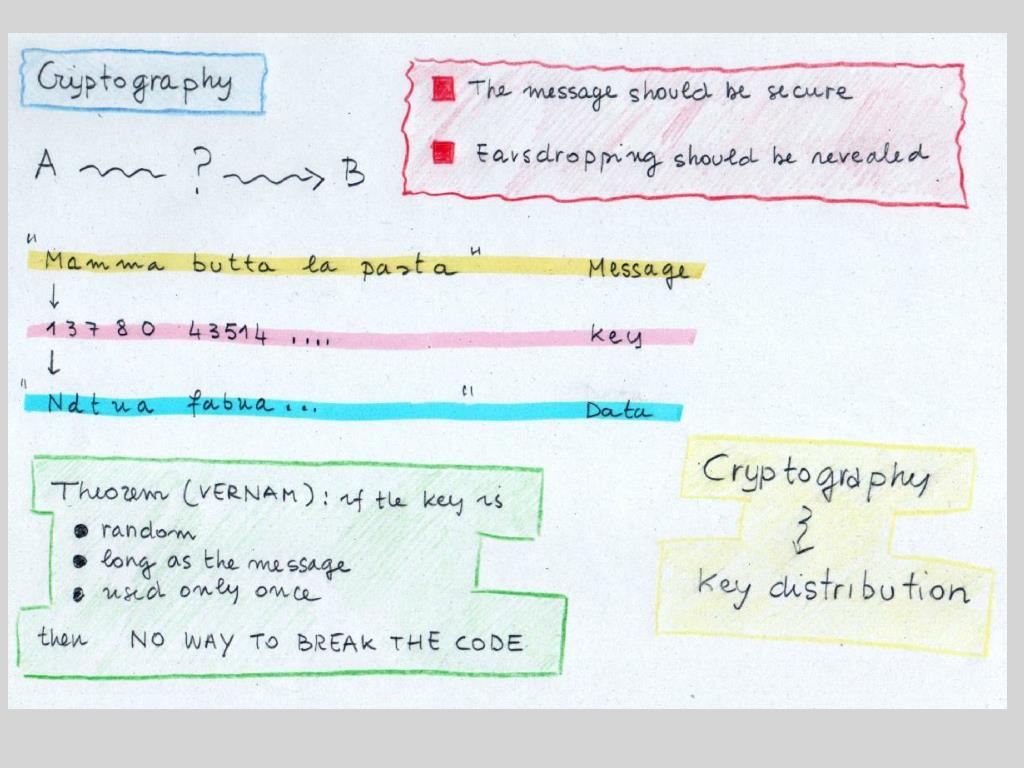 Cryptography
■ The message should be secure
■ Earsdropping should be revealed
A ? B
"Mamma butta la pasta" Message
↓
13780 43514 .... Key
↓
"Ndtua fabua... " Data
Theorem (VERNAM): if the key is
• random
• long as the message
• used only once
then NO WAY TO BREAK THE CODE
Cryptography
Key distribution